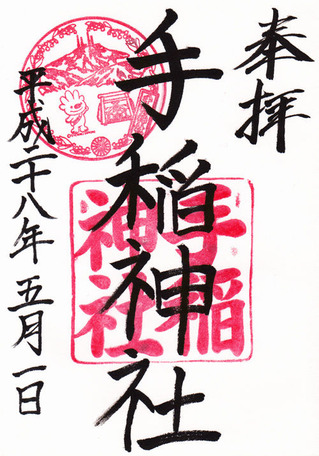 奉拝
手稲神社
手稲
神社
平成二十八年五月一日